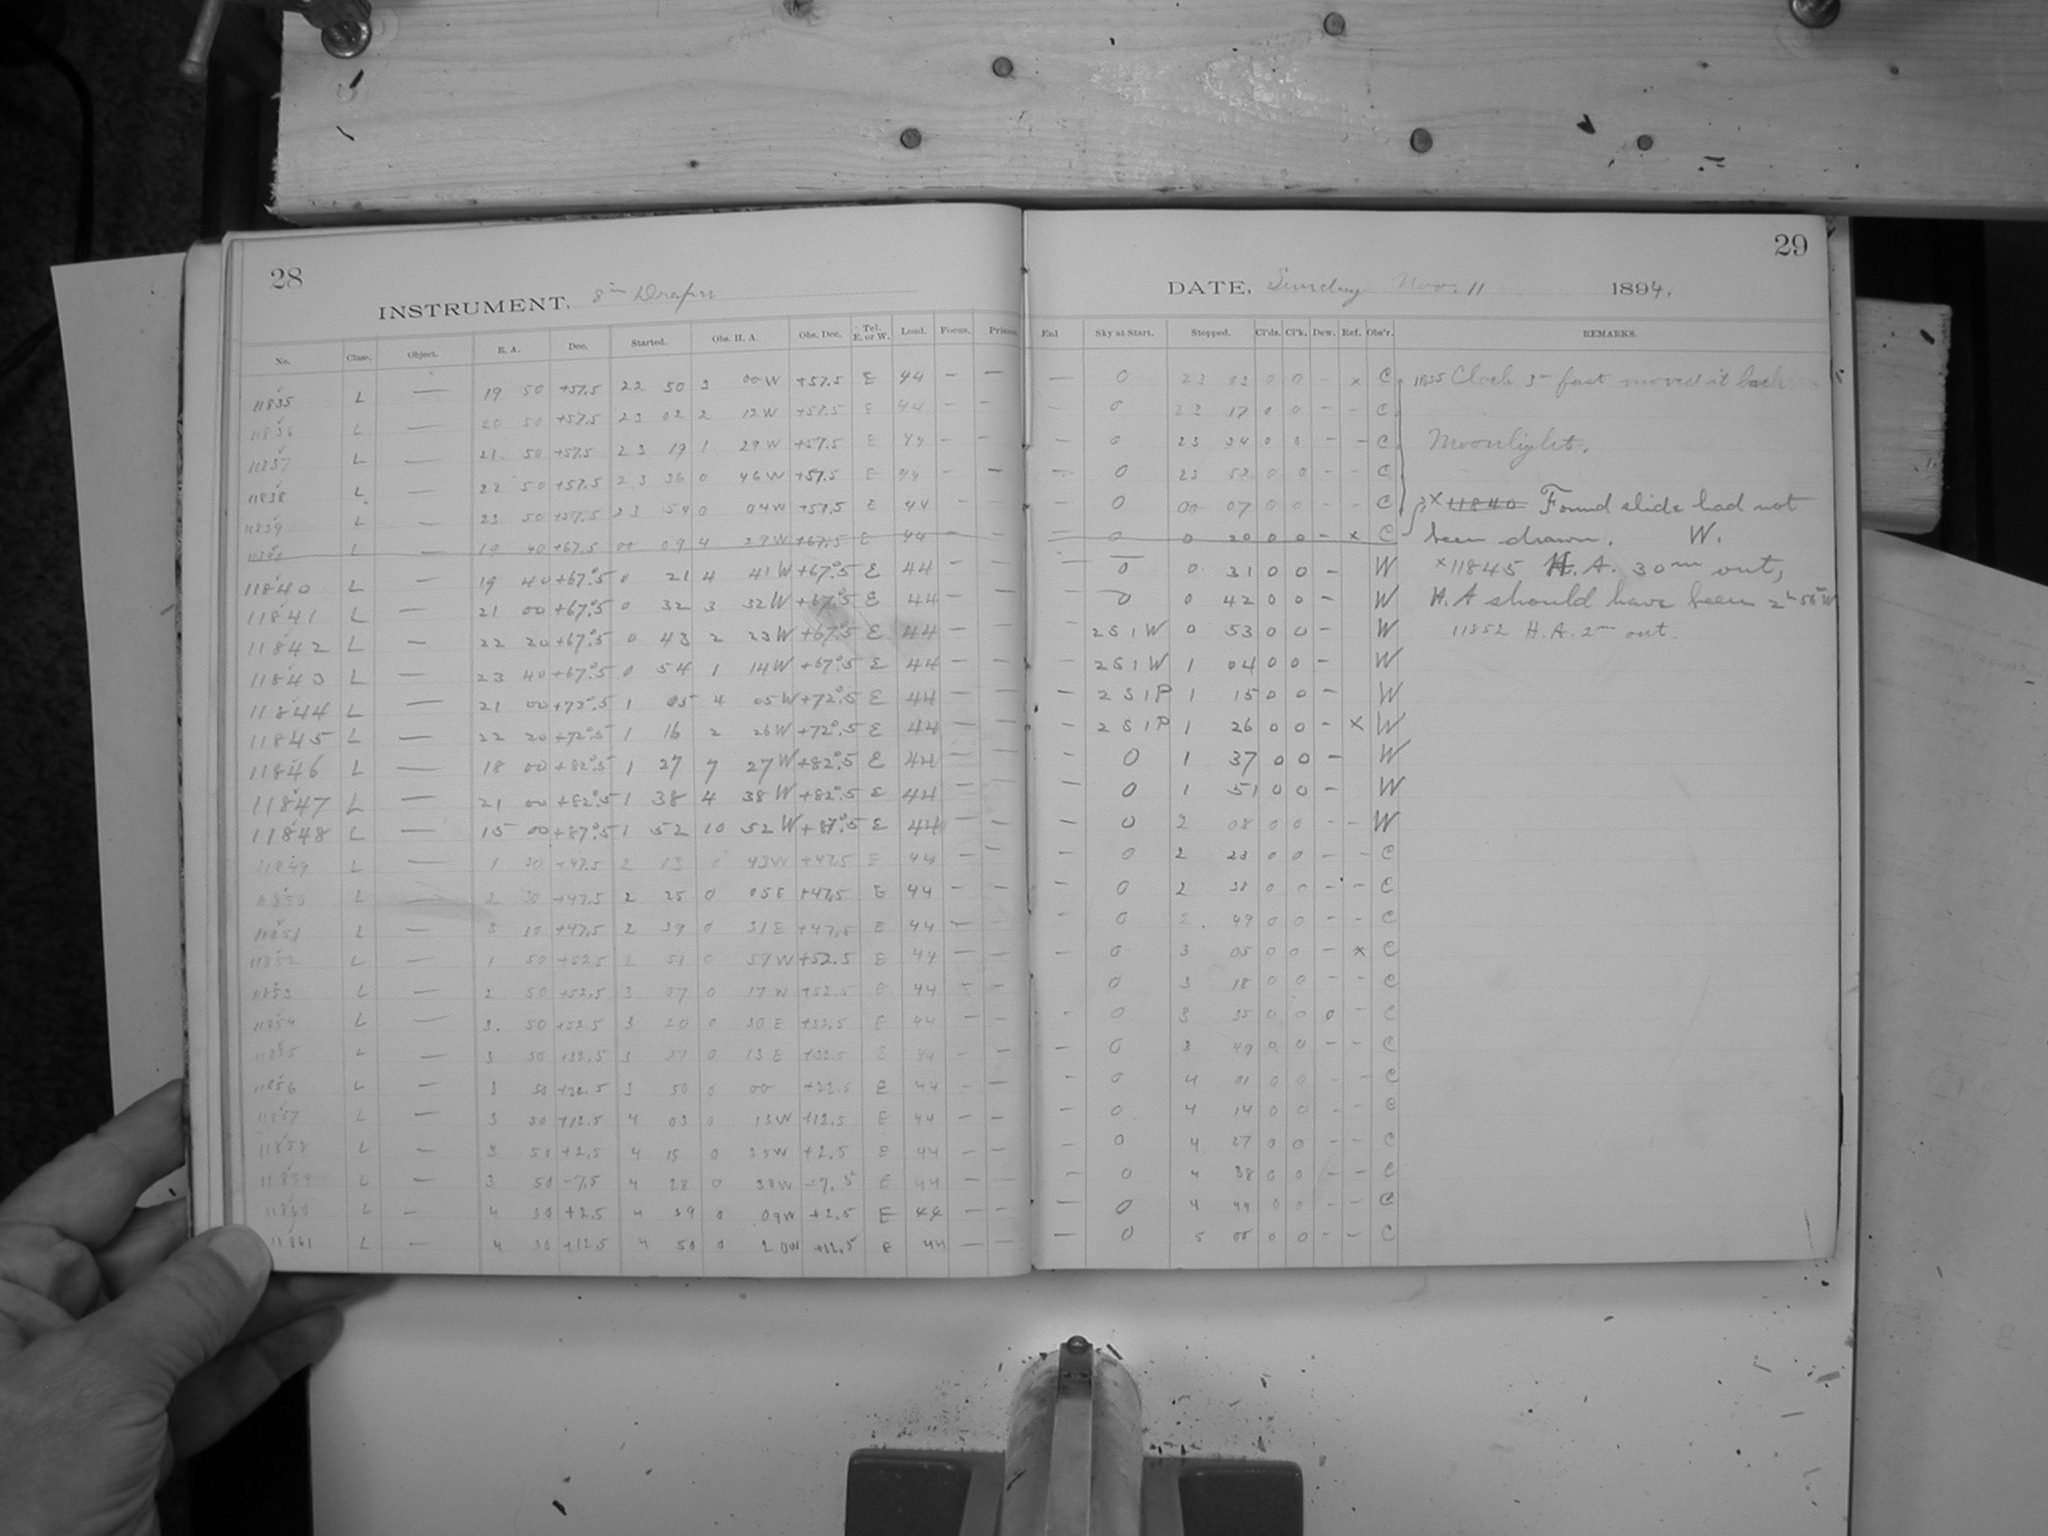 28
INSTRUMENT. 8 in Draper
No. Class. Object. R. A. Dec. Started. Obs. H. A. Obs. Dec. Tel. E. or W. Load. Focus.
11835 L — 19 50 +57.5 22 50 3 00 W +57.5 E 44 — —
11836 L — 20 50 +57.5 23 02 2 12 W +57.5 E 44 — —
11837 L — 21 50 +57.5 23 19 1 29 W +57.5 E 44 — —
11838 L — 22 50 +57.5 23 36 0 46 W +57.5 E 44 — —
11839 L — 23 50 +57.5 23 54 0 04 W +57.5 E 44 — —
11840 L — 19 40 +67.5 00 09 4 29 W +67.5 E 44 — —
11840 L — 19 40 +67.5 0 21 4 41 W +67.5 E 44 — —
11841 L — 21 00 +67.5 0 32 3 32 W +67.5 E 44 — —
11842 L — 22 20 +67.5 0 43 2 23 W +67.5 E 44 — —
11843 L — 23 40 +67.5 0 54 1 14 W +67.5 E 44 — —
11844 L — 21 00 +72.5 1 05 4 05 W +72.5 E 44 — —
11845 L — 22 20 +72.5 1 16 2 26 W +72.5 E 44 — —
11846 L — 18 00 +82.5 1 27 7 27 W +82.5 E 44 — —
11847 L — 21 00 +82.5 1 38 4 38 W +82.5 E 44 — —
11848 L — 15 00 +87.5 1 52 10 52 W +87.5 E 44 — —
11849 L — 1 30 +47.5 2 13 0 43 W +47.5 E 44 — —
11850 L — 2 30 +47.5 2 25 0 05 E +47.5 E 44 — —
11851 L — 3 10 +47.5 2 39 0 31 E +47.5 E 44 — —
11852 L — 1 50 +52.5 2 51 0 59 W +52.5 E 44 — —
11853 L — 2 50 +52.5 3 07 0 17 W +52.5 E 44 — —
11854 L — 3 50 +52.5 3 20 0 30 E +52.5 E 44 — —
11855 L — 3 50 +32.5 3 37 0 13 E +32.5 E 44 — —
11856 L — 3 50 +22.5 3 50 0 00 +22.5 E 44 — —
11857 L — 3 50 +12.5 4 03 0 13 W +12.5 E 44 — —
11858 L — 3 50 +2.5 4 15 0 25 W +2.5 E 44 — —
11859 L — 3 50 -7.5 4 28 0 38 W -7.5 E 44 — —
11860 L — 4 30 +2.5 4 39 0 09 W +2.5 E 44 — —
11861 L — 4 30 +12.5 4 50 0 20 W +12.5 E 44 — —
29
DATE, Sunday Nov. 11 1894.
End Sky at Start. Stopped. Cl'ds. Cl'k. Dew. Ref. Obs'r. REMARKS.
— 0 23 0 0 – x C 11835 Clock 3m fast moved it back
— 0 23 17 0 0 – – C
— 0 23 34 0 0 – – C Moonlight.
— 0 23 52 0 0 – – C
— 0 00 07 0 0 – – C x 11840 Found slide had not
— 0 0 20 0 0 – x C been drawn. W.
— 0 0 31 0 0 – W x 11845 H. A. 30m out,
— 0 0 42 0 0 – W H. A should have been 2h 56m W
— 2 S 1 W 0 53 0 0 – W 11852 H. A. 2m out.
— 2 S 1 W 1 04 0 0 – W
— 2 S 1 P 1 15 0 0 – W
— 2 S 1 P 1 26 0 0 – x W
— 0 1 37 0 0 – W
— 0 1 51 0 0 – W
— 0 2 08 0 0 – – W
— 0 2 23 0 0 – – C
— 0 2 38 0 0 – – C
— 0 2 49 0 0 – – C
— 0 3 05 0 0 – x C
— 0 3 18 0 0 – – C
— 0 3 35 0 0 0 – C
— 0 3 49 0 0 – – C
— 0 4 01 0 0 – – C
— 0 4 14 0 0 – – C
— 0 4 27 0 0 – – C
— 0 4 38 0 0 – – C
— 0 4 49 0 0 – – C
— 0 5 00 0 0 – – C